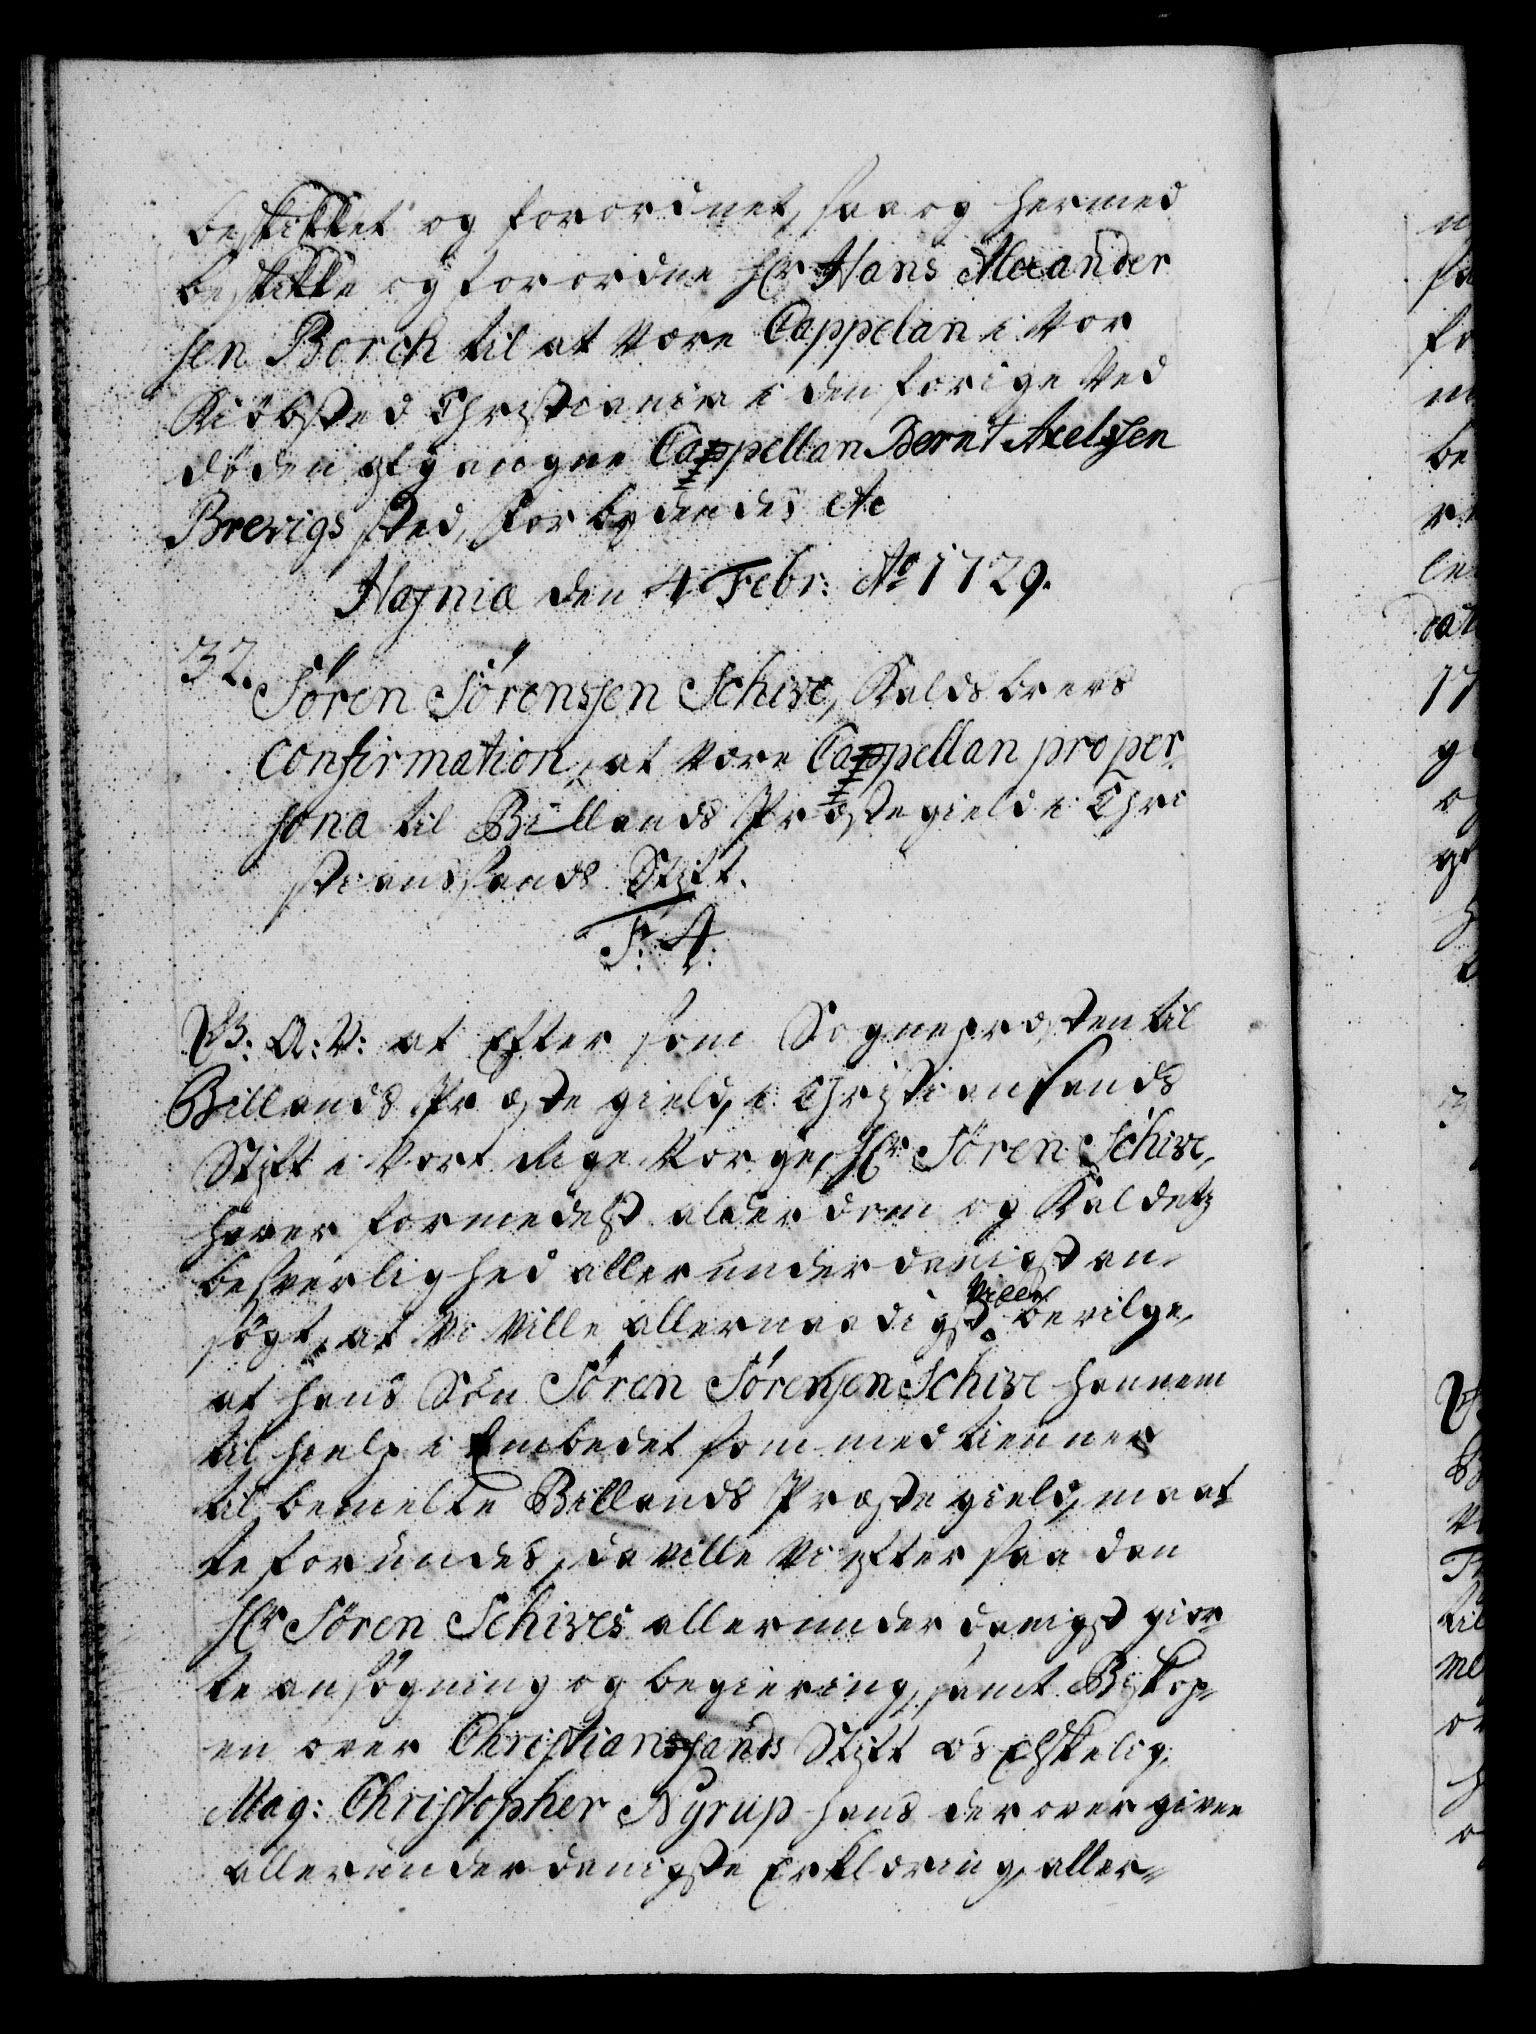 beskikket og forordnet, saa og hermed
beskikke og forordne Hr Hans Alexander
sen Borch til at være Cappelan i Vor
Kiöbsted Christiania i den forige ved
döden afgangne Cappellan Bernt Axelssen
Brevigs sted, Forbydendes etc
Hafniæ den 4 Febr: Ao 1729.
32. Sören Sörenssen Schive, Kaldsbrevs
Confirmation, at være Cappellan proper
sona til Billands Præstegield i Chri
stianssands Stift.
F: 4.
V: G: A: V: at Efter som Sognepræsten til
Billands Præstegield, i Christiansands
Stift i Vort Rige Norge, Hr Sören Schive,
haver formedelst alderdom og Kaldetz
besverlighed allerunderdanigst an
søgt, at Vi ville allernaadigst bevilge,
at hans Sön Sören Sörensen Schive hannem
til hielp i Embedet som medtienner
til bemelte Billands Præstegield, maat
te forundes, da ville Vi efter saadan
Hr Sören Schives allerunderdanigst gior
te ansøgning og begiering, samt Biskop
en over Christianssands Stift os Elskelig
Mag: Christopher Nyrup hans derover givne
allerunderdanigste Erklæring, aller-